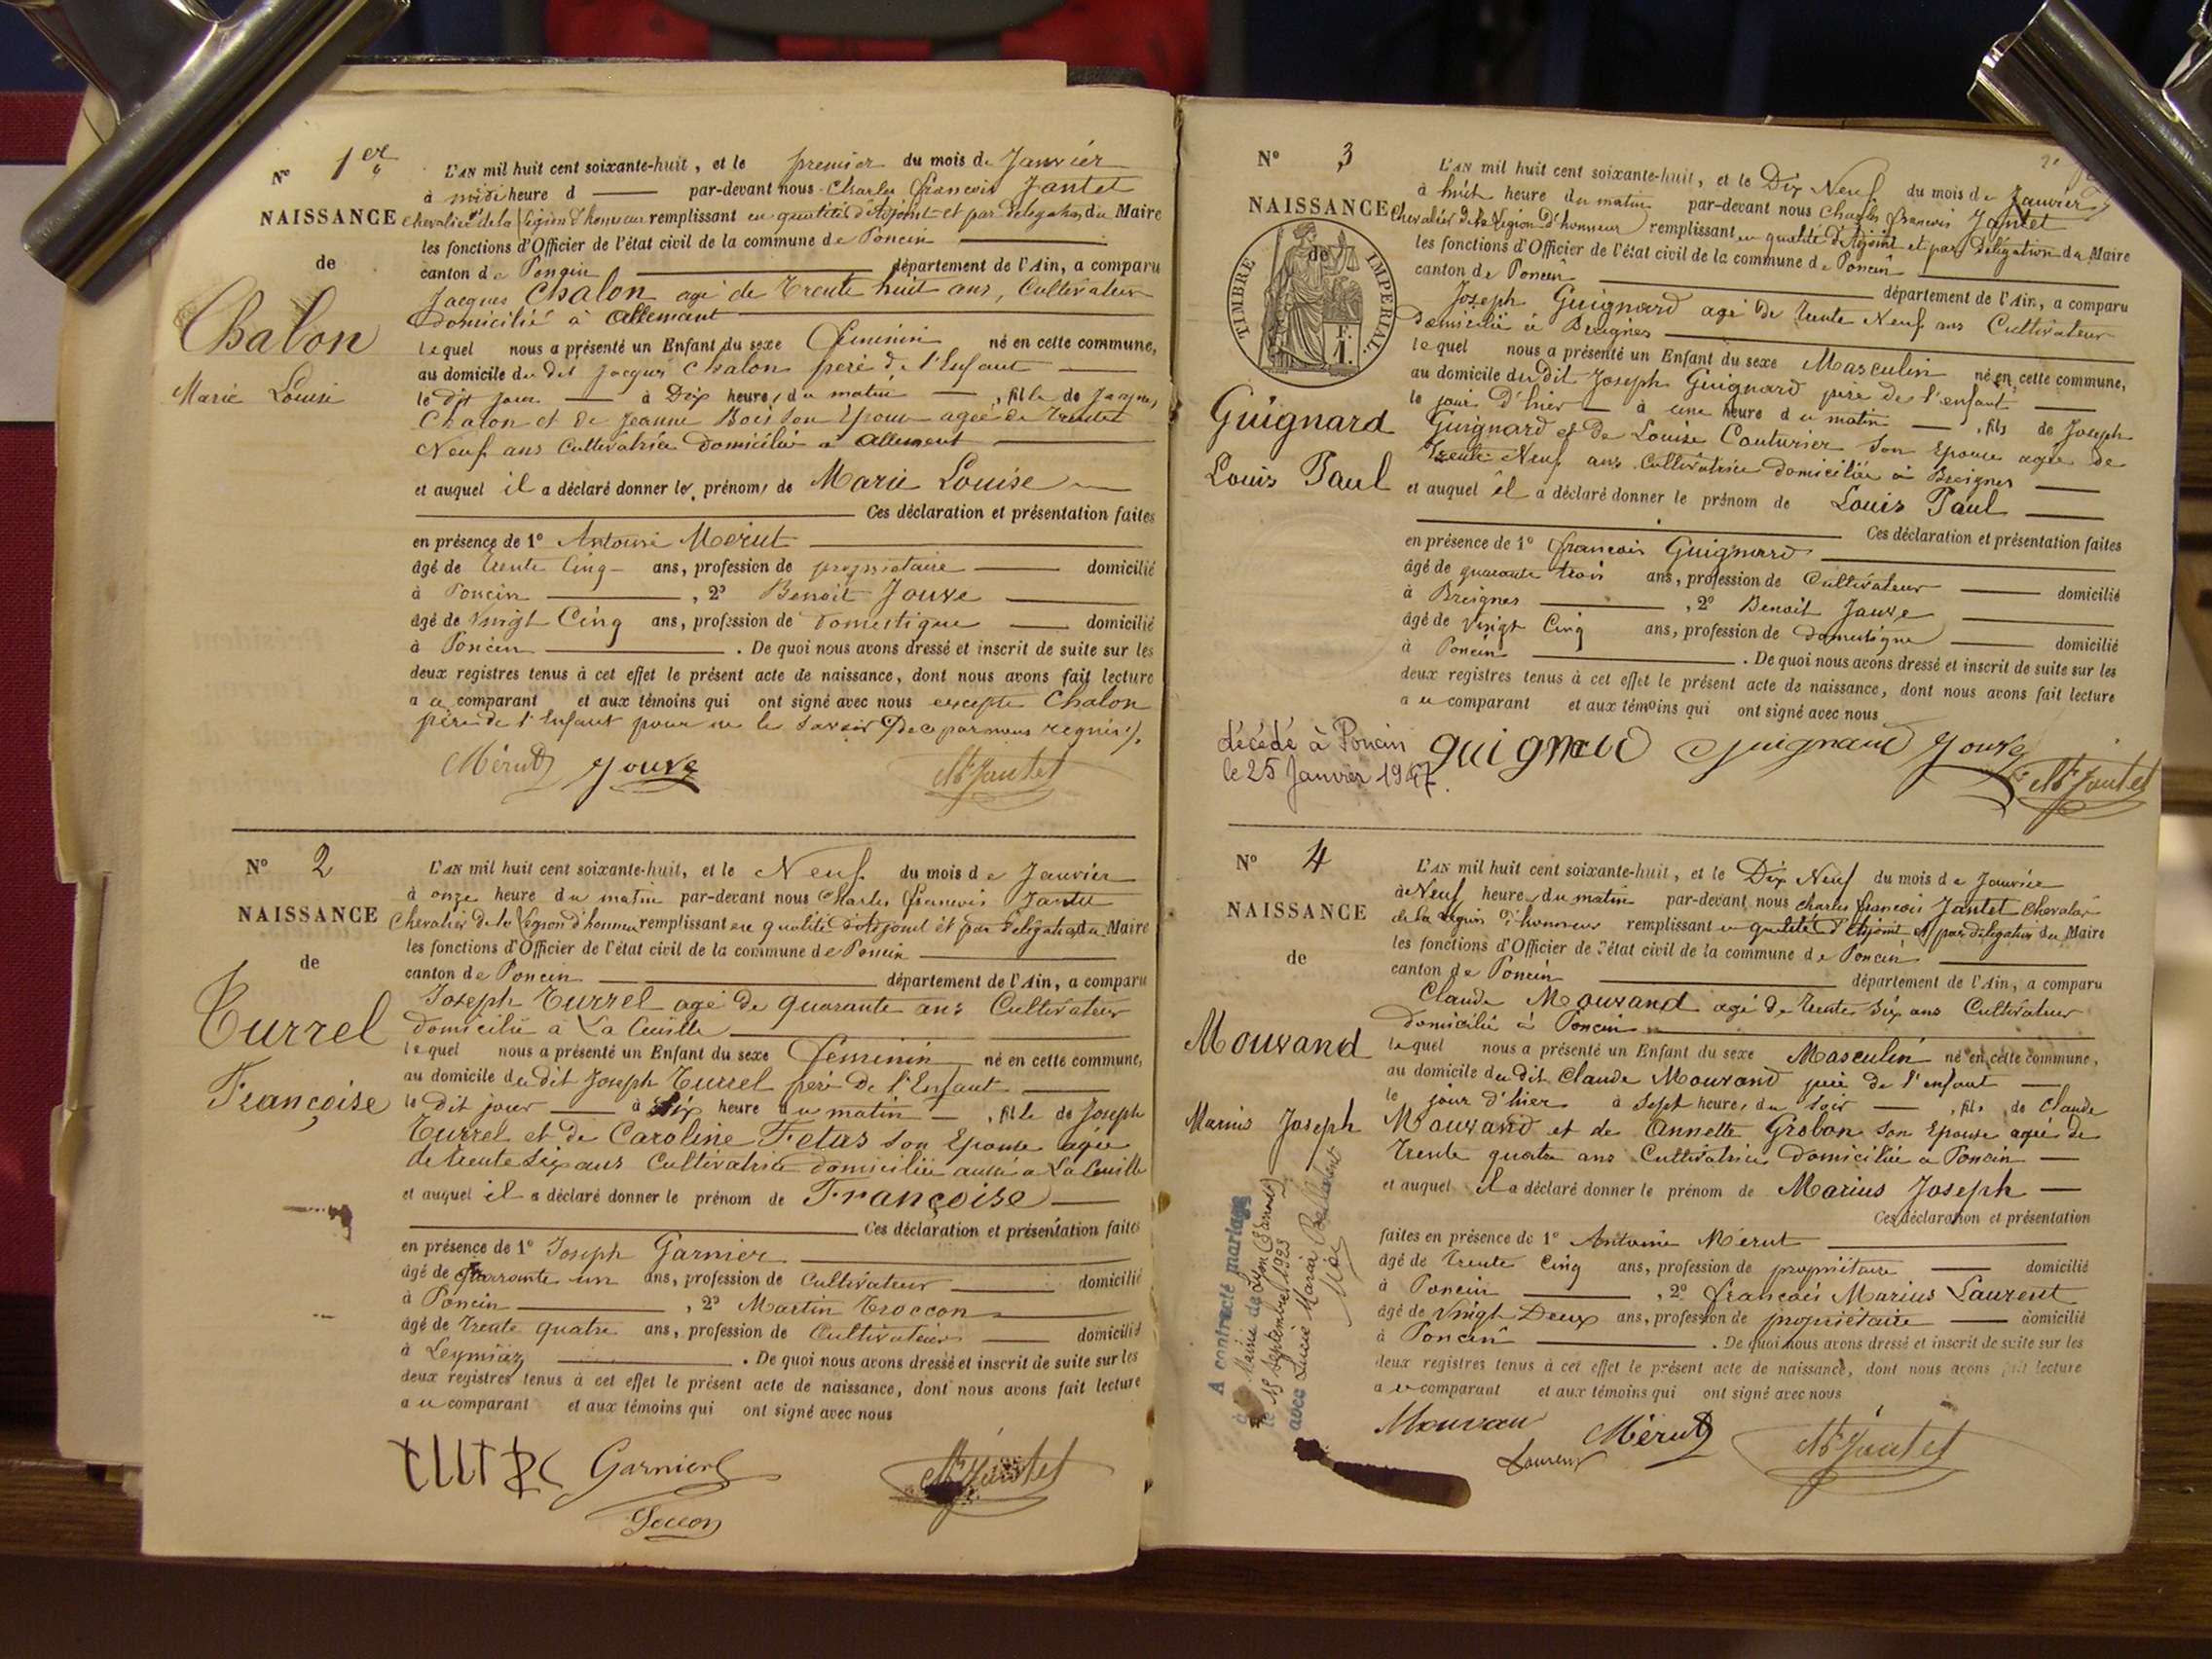 N° 1er
NAISSANCE
de
Chalon
Marie Louise
L'AN mil huit cent soixante-huit, et le premier du mois de Janvier
à midi heure d par-devant nous Charles francois Jantet
chevalier de la Légion d'honneur remplissant en qualité d'Adjoint et par délégation du Maire
les fonctions d'Officier de l'état civil de la commune de Poncin
canton de Poncin département de l'Ain, a comparu
Jacques Chalon agé de Trente huit ans, Cultivateur
domicilié à allement
lequel nous a présenté un Enfant du sexe feminin né en cette commune,
au domicile du dit Jacques Chalon père de l'Enfant
le dit jour à Dix heures du matin, fille de Jacques
Chalon et de Jeanne Bois son Epouse agée de trente
Neuf ans Cultivatrice domiciliée à allement
et auquel il a déclaré donner les prénoms de Marie Louise
Ces déclaration et présentation faites
en présence de 1° Antoine Mérut
âgé de trente Cinq ans, profession de propriétaire domicilié
à Poncin, 2° Benoit Jouve
âgé de Vingt Cinq ans, profession de domestique domicilié
à Poncin. De quoi nous avons dressé et inscrit de suite sur les
deux registres tenus à cet effet le présent acte de naissance, dont nous avons fait lecture
a ce comparant et aux témoins qui ont signé avec nous excepté Chalon
père de l'Enfant pour ne le savoir de ce par nous requis.
Mérut Jouve Jantet
N° 2
NAISSANCE
de
Turrel
Françoise
L'AN mil huit cent soixante-huit, et le Neuf du mois de Janvier
à onze heure du matin par-devant nous Charles francois Jantet
Chevalier de la Légion d'honneur remplissant en qualité d'Adjoint et par délégation du Maire
les fonctions d'Officier de l'état civil de la commune de Poncin
canton de Poncin département de l'Ain, a comparu
Joseph Turrel agé de quarante ans Cultivateur
domicilié à La Cueille
lequel nous a présenté un Enfant du sexe feminin né en cette commune,
au domicile du dit Joseph Turrel père de l'Enfant
le dit jour à Six heure du matin, fille de Joseph
Turrel et de Caroline Fetas son Epouse agée
de trente Six ans Cultivatrice domiciliée aussi a La Cueille
et auquel il a déclaré donner le prénom de Françoise
Ces déclaration et présentation faites
en présence de 1° Joseph Garnier
âgé de quarante un ans, profession de Cultivateur domicilié
à Poncin, 2° Martin Troccon
âgé de trente quatre ans, profession de Cultivateur domicilié
à Leymiaz. De quoi nous avons dressé et inscrit de suite sur les
deux registres tenus à cet effet le présent acte de naissance, dont nous avons fait lecture
a ce comparant et aux témoins qui ont signé avec nous
Garnier Jantet
N° 3
NAISSANCE
de
TIMBRE IMPERIAL
F. 1.
Guignard
Louis Paul
L'AN mil huit cent soixante-huit, et le Dix Neuf du mois de Janvier
à huit heure du matin par-devant nous Charles francois Jantet
Chevalier de la Légion d'honneur remplissant en qualité d'Adjoint et par délégation du Maire
les fonctions d'Officier de l'état civil de la commune de Poncin
canton de Poncin département de l'Ain, a comparu
Joseph Guignard agé de trente Neuf ans Cultivateur
domicilié à Breignes
lequel nous a présenté un Enfant du sexe Masculin né en cette commune,
au domicile du dit Joseph Guignard père de l'enfant
le jour d'hier à une heure du matin, fils de Joseph
Guignard et de Louise Couturier Son Epouse agée de
Trente Neuf ans Cultivatrice domiciliée à Breignes
et auquel il a déclaré donner le prénom de Louis Paul
Ces déclaration et présentation faites
en présence de 1° francois Guignard
âgé de quarante trois ans, profession de Cultivateur domicilié
à Breignes, 2° Benoit Jouve
âgé de Vingt Cinq ans, profession de domestique domicilié
à Poncin. De quoi nous avons dressé et inscrit de suite sur les
deux registres tenus à cet effet le présent acte de naissance, dont nous avons fait lecture
a ce comparant et aux témoins qui ont signé avec nous
décédé à Poncin
le 25 Janvier 1947.
guignard Guignard Jouve
Jantet
N° 4
NAISSANCE
de
Mouvand
Marius Joseph
L'AN mil huit cent soixante-huit, et le Dix Neuf du mois de Janvier
à Neuf heure du matin par-devant nous charles francois Jantet Chevalier
de la Légion d'honneur remplissant en qualité d'Adjoint et par délégation du Maire
les fonctions d'Officier de l'état civil de la commune de Poncin
canton de Poncin département de l'Ain, a comparu
Claude Mouvand agé de trente Six ans Cultivateur
domicilié à Poncin
lequel nous a présenté un Enfant du sexe Masculin né en cette commune,
au domicile du dit Claude Mouvand père de l'enfant
le jour d'hier à Sept heures du Soir, fils de Claude
Mouvand et de Annette Grobon Son Epouse agée de
Trente quatre ans Cultivatrice domiciliée a Poncin
et auquel il a déclaré donner le prénom de Marius Joseph
Ces déclaration et présentation
faites en présence de 1° Antoine Mérut
âgé de Trente Cinq ans, profession de propriétaire domicilié
à Poncin, 2° francois Marius Laurent
âgé de Vingt Deux ans, profession de propriétaire domicilié
à Poncin. De quoi nous avons dressé et inscrit de suite sur les
deux registres tenus à cet effet le présent acte de naissance, dont nous avons fait lecture
a ce comparant et aux témoins qui ont signé avec nous
Mouvan Mérut Jantet
Laurent
A contracté mariage
à Mairie de Lyon
le 15 Septembre 1923
avec Lucie Maria